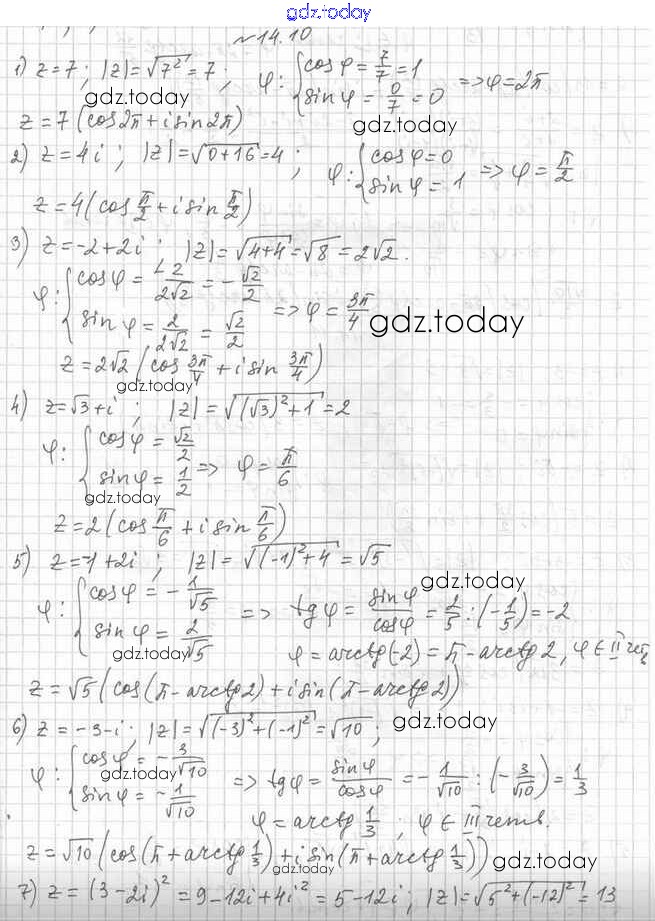 gdz.today
№14.10
1) z=7; |z|=√7² =7; φ: {cos φ = 7/7 =1
sin φ = 0/7 =0 => φ=2π
gdz.today
gdz.today
z=7(cos2π+i sin2π)
2) z=4i; |z|=√0+16=4; φ: {cos φ=0
sin φ= 1 => φ= π/2
gdz.today
gdz.today
z=4(cos π/2 + i sin π/2)
3) z=-2+2i; |z|=√4+4=√8=2√2.
φ: {cos φ = -2/2√2 = -√2/2
sin φ = 2/2√2 = √2/2 => φ= 3π/4
gdz.today
z=2√2(cos 3π/4 + i sin 3π/4)
gdz.today
4) z=√3+i; |z|=√(√3)²+1=2
φ: {cos φ = √2/2
sin φ= 1/2 => φ= π/6
gdz.today
z=2(cos π/6 + i sin π/6)
5) z=-1+2i; |z|=√(-1)²+4=√5
gdz.today
φ: {cos φ = -1/√5
sin φ = 2/√5 => tg φ = sin φ/cos φ = 2/5 : (-1/5)=-2
gdz.today
φ=arctg(-2)=π-arctg2, φ∈II четв
z=√5(cos(π-arctg2)+i sin(π-arctg2))
6) z=-3-i; |z|=√(-3)²+(-1)²=√10;
gdz.today
φ: {cos φ = -3/√10
sin φ = -1/√10 => tg φ = sin φ/cos φ = -1/√10 : (-3/√10)= 1/3
gdz.today
φ=arctg 1/3; φ∈III четв.
z=√10(cos(π+arctg 1/3)+i sin(π+arctg 1/3))
gdz.today
gdz.today
7) z=(3-2i)²=9-12i+4i²=5-12i; |z|=√5²+(-12)²=13